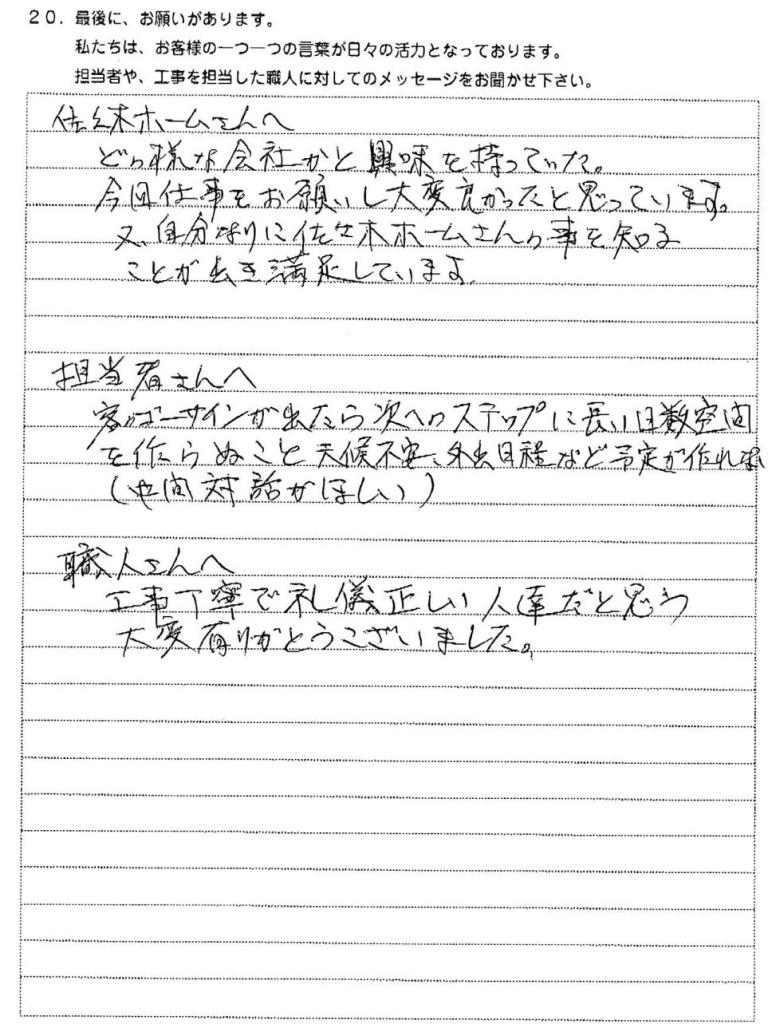 20. 最後に、お願いがあります。
私たちは、お客様の一つ一つの言葉が日々の活力となっております。
担当者や、工事を担当した職人に対してのメッセージをお聞かせ下さい。
佐々木ホームさんへ
どの様な会社かと興味を持っていた。
今回仕事をお願いし大変良かったと思っています。
又、自分なりに佐々木ホームさんの事を知る
ことが出き満足しています。
担当者さんへ
サインが出たら次へのステップに長い日数空間
を作らぬこと 天候不安、外出日程など予定が作れ
(中間対話がほしい)
職人さんへ
工事丁寧で礼儀正しい人達だと思う
大変有りがとうございました。